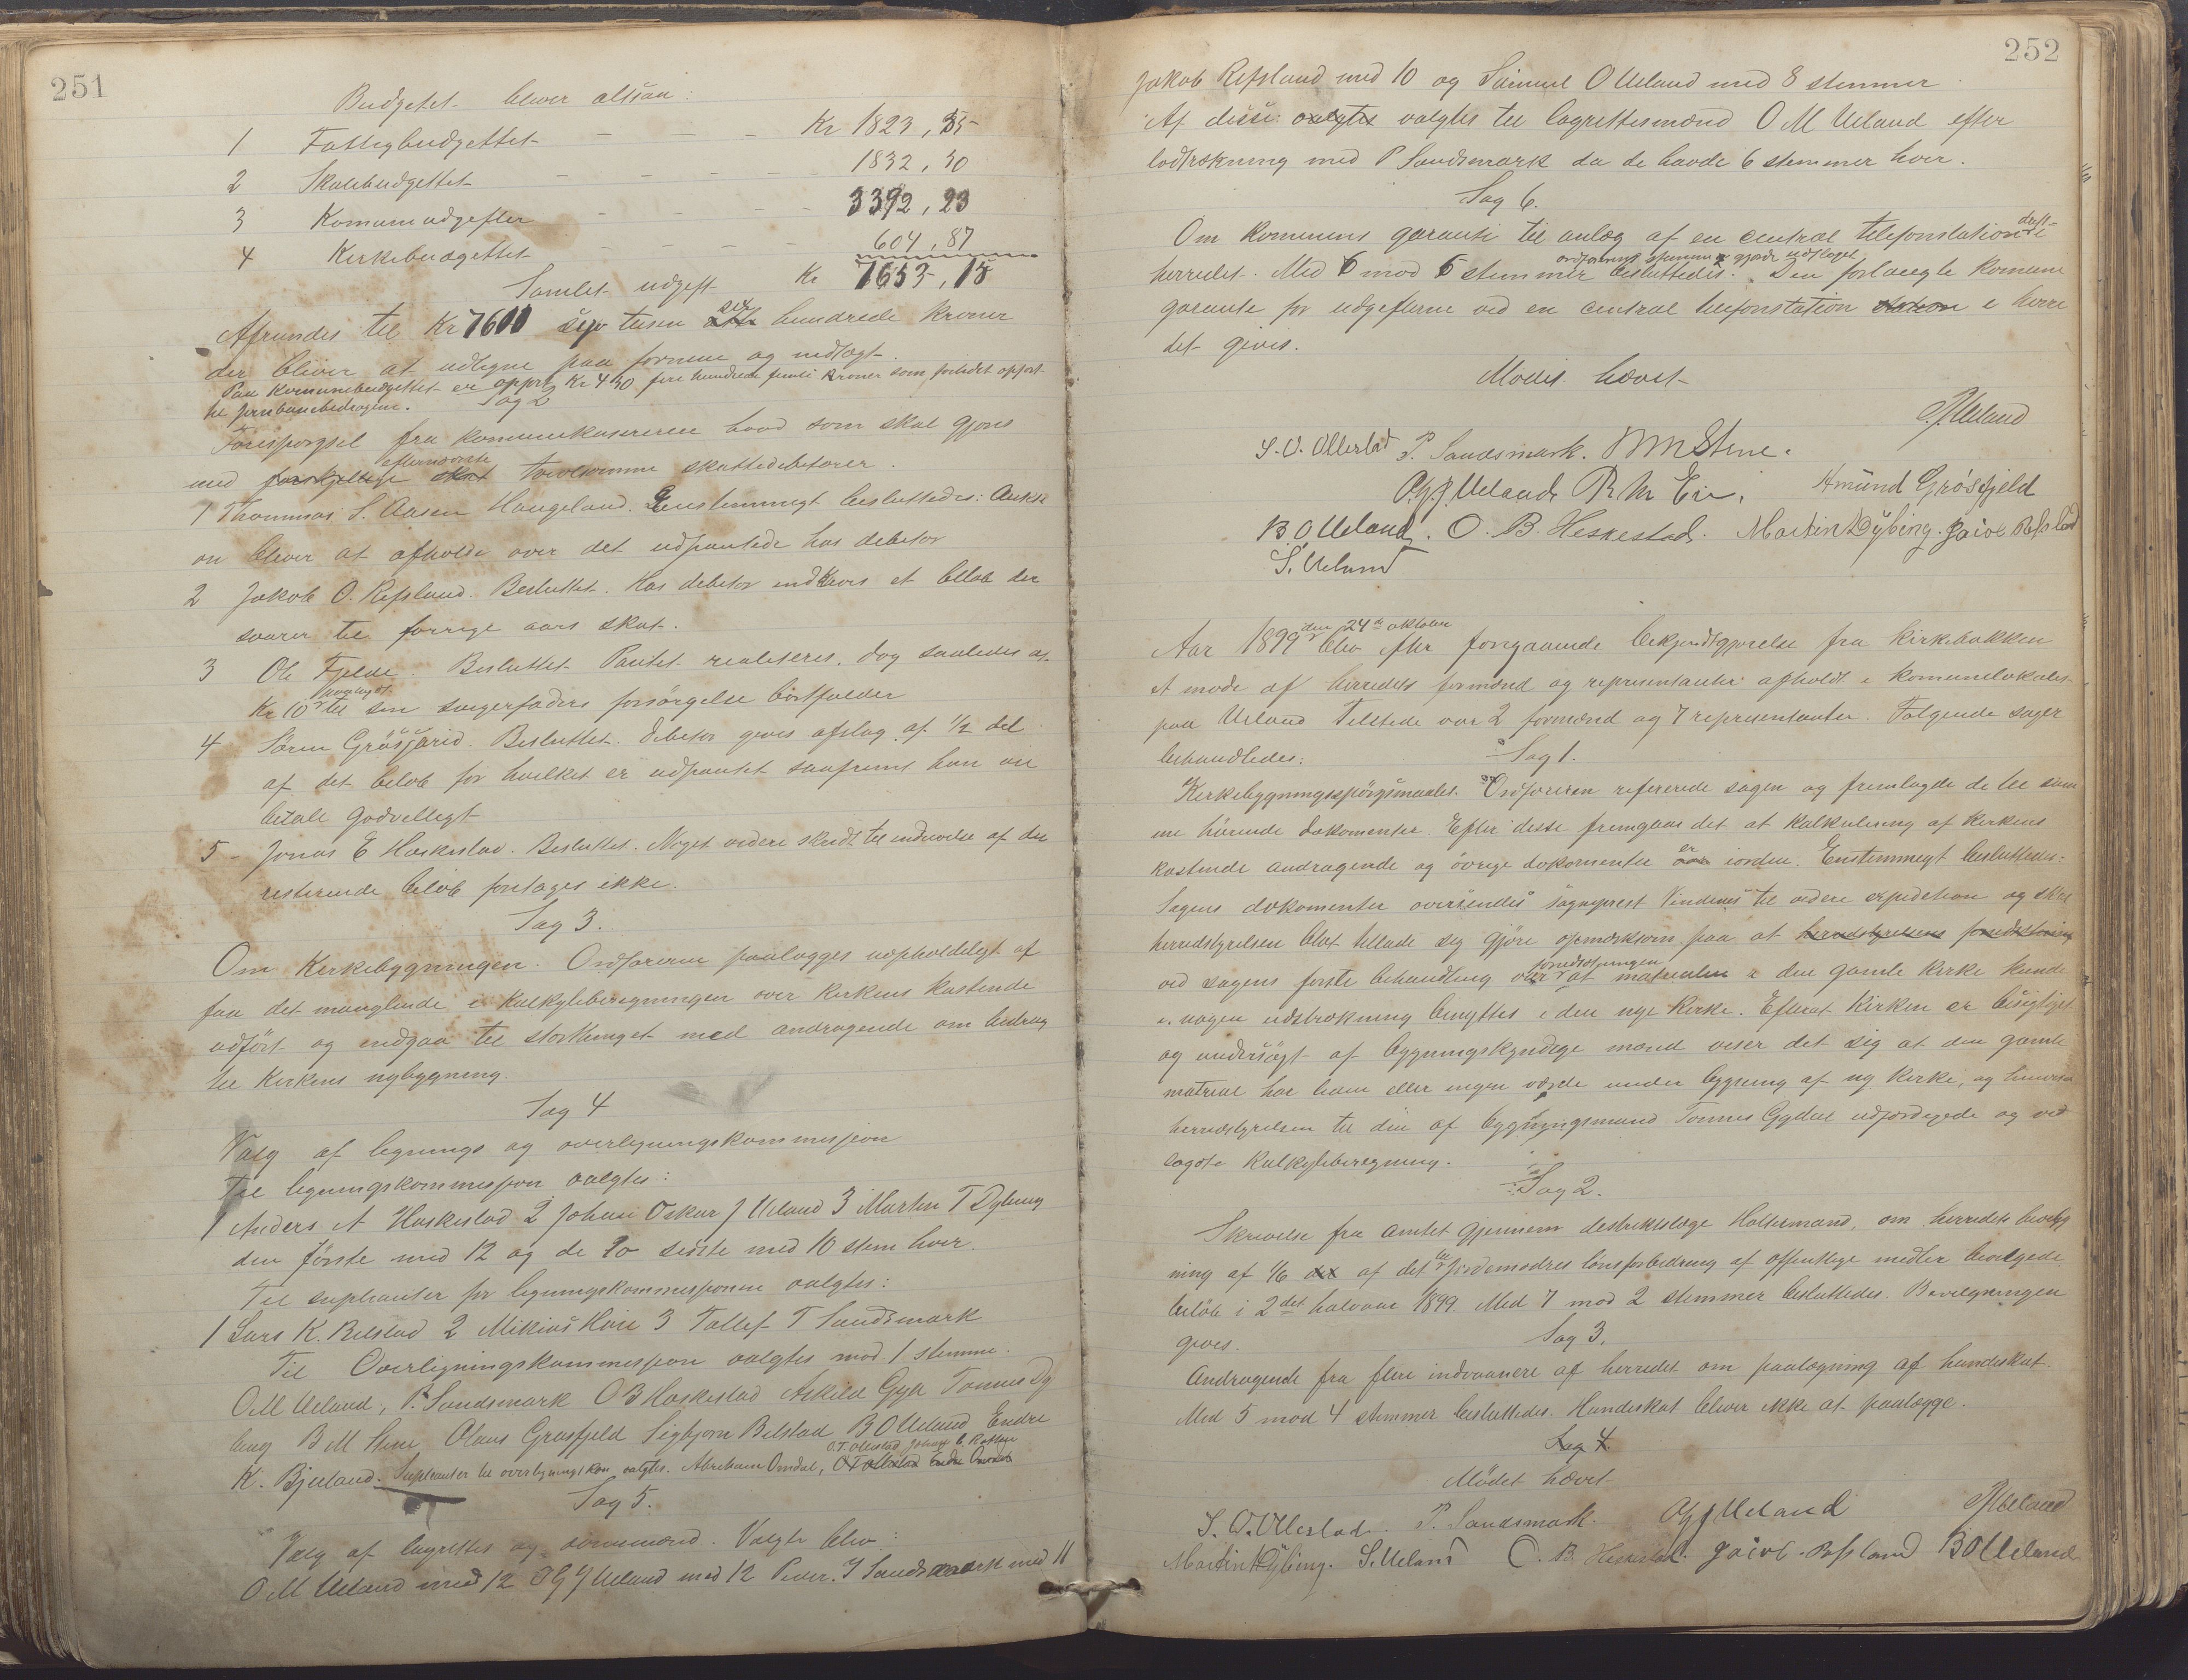 251
Budgetet bliver altsaa:
1 Fattigbudgettet - - - - Kr 1823,35
2 Skolebudgettet - - - - 1832,30
3 Komunudgifter - - - - 3392,23
4 Kirkebudgettet - - - - 604,87
Samlet udgift Kr 7653,15
Afrundes til Kr 7600 syv tusen sex hundrede kroner
der bliver at udligne paa formue og indtægt.
Paa Komunebudgettet er opført Kr 450 fire hundrede femti kroner som forledet opført
til jernbanebidragene.
Sag 2
Forespørgsel fra kommunekassereren hvad som skal gjøres
med forskjellige efternævnte tvivlsomme skattedebitorer.
1 Thommas S. Aasen Haugeland. Enstemmigt besluttedes: Auksi
on bliver at afholde over det udpantede hos debitor
2 Jakob O. Refsland. Besluttet. Hos debitor indkræves et beløb der
svarer til forrige aars skat.
3 Ole Fjelde. Besluttet Pantet realiseres, dog saaledes at
Kr 10 paalagt til sin svigerfaders forsørgelse bortfalder
4 Søren Grøsfjarid. Besluttet. Debitor gives afslag af 1/2 del
af det beløb for hvilket er udpantet saafremt han vil
betale godvilligt
5 - Jonas E Haskestad. Besluttet. Noget videre skridt til inddrivelse af det
resterende beløb foretages ikke.
Sag 3.
Om Kirkebygningen. Ordføreren paalægges uopholdeligt at
faa det manglende i Kalkyleberegningen over kirkens kostende
udført og indgaa til storthinget med andragende om bidrag
til Kirkens nybygning.
Sag 4
Valg af lignings og overligningskommisjion
Til ligningskommisjon valgtes:
1 Anders A Haskestad 2 Johan Oskar J Ueland 3 Martin T Dybing
den første med 12 og de to sidste med 10 stem hver.
Til suplianter for ligningskommisjonen valgtes:
1 Lars K. Bilstad 2 Mikias Eie 3 Tallef T Sandsmark
Til Overligningskommisjon valgtes mod 1 stemme.
O M Ueland, P. Sandsmark O B Haskestad Askild Gya Tønnes Dy
bing B M Stene Olaus Grøsfjeld Sigbjørn Bilstad B O Ueland Endre
O.T. Ollestad Johan C. Rotten
K. Bjelland. Suplianter til overligningskom valgtes. Abraham Omdal, O T Ollestad Endre
Sag 5.
Valg af lagrettes og domsmænd. Valgte blev:
O M Ueland med 12 O G J Ueland med 12 Peder. T Sandsmark med 11
252
Jakob Refsland med 10 og Samuel O Ueland med 8 stemmer.
Af disse valgtes valgtes til lagrettesmænd O M Ueland efter
lodtrækning med P Sandsmark da de havde 6 stemmer hver.
Sag 6.
Om kommunens garanti til anlæg af en central telefonstation drift i
herredet. Med 6 mod 5 stemmer ordførerens stemme gjorde udslaget besluttedes. Den forlangte komune
garanti for udgifterne ved en central telefonstation station i herre
det gives.
Mødet hævet
P. Ueland
S. O. Ollestad P. Sandsmark. B M Stene.
O.G.J. Ueland R. M. Eie. Amund Grøsfjeld
B. O Ueland. O. B. Heskestad. Martin T Dybing. Jacob Refsland
S. Ueland
Aar 1899 den 24de oktober blev efter forgaaende bekjendtgjørelse fra kirkebakken
et møde af herredets formænd og representanter afholdt i komunelokalet
paa Ueland Tilstede var 2 formænd og 7 representanter. Følgende sager
behandledes:
Sag 1.
Kirkebygningsspørgsmaalet. Ordføreren refererede sagen og fremlagde de til sam
me hørende dokomenter. Efter disse fremgaar det at kalkulering af kirkens
kostende andragende og øvrige dokomenter er iorden. Enstemmigt besluttedes:
Sagens dokomenter oversendes sogneprest Vindenes til videre expedition og skal
herredstyrelsen blot tillade sig gjøre opmærksom paa at herredstyrelsens forudsætning
ved sagens første behandling var forudsætningen at materialer i den gamle kirke kunde
i nogen udstrækning benyttes i den nye kirke. Efterat Kirken er besigtiget
og undersøgt af bygningskyndige mænd viser det sig at den gamle
matrial har liden eller ingen værde under bygning af ny kirke, og henviser
herredstyrelsen til den af bygningsmand Tønnes Gydal udfærdigede og ved
lagte Kalkyleberegning.
Sag 2.
Skrivelse fra amtet gjennem destriktslæge Holtermand, om herredets bevilg
ning af 1/6 af det til jordemødres lønsforbedring af offentlige midler bevilgede
beløb i 2det halvaar 1899. Med 7 mod 2 stemmer besluttedes. Bevilgningen
gives.
Sag 3.
Andragende fra flere indvaanere af herredet om paalægning af hundeskat.
Med 5 mod 4 stemmer besluttedes. Hundeskat bliver ikke at paalægge.
Sag 4.
Mødet hævet
S. O. Ollestad. P. Sandsmark. O G J Ueland P Ueland
Martin T Dybing. S. Ueland O. B. Heskestad. Jacob. Refsland B O Ueland